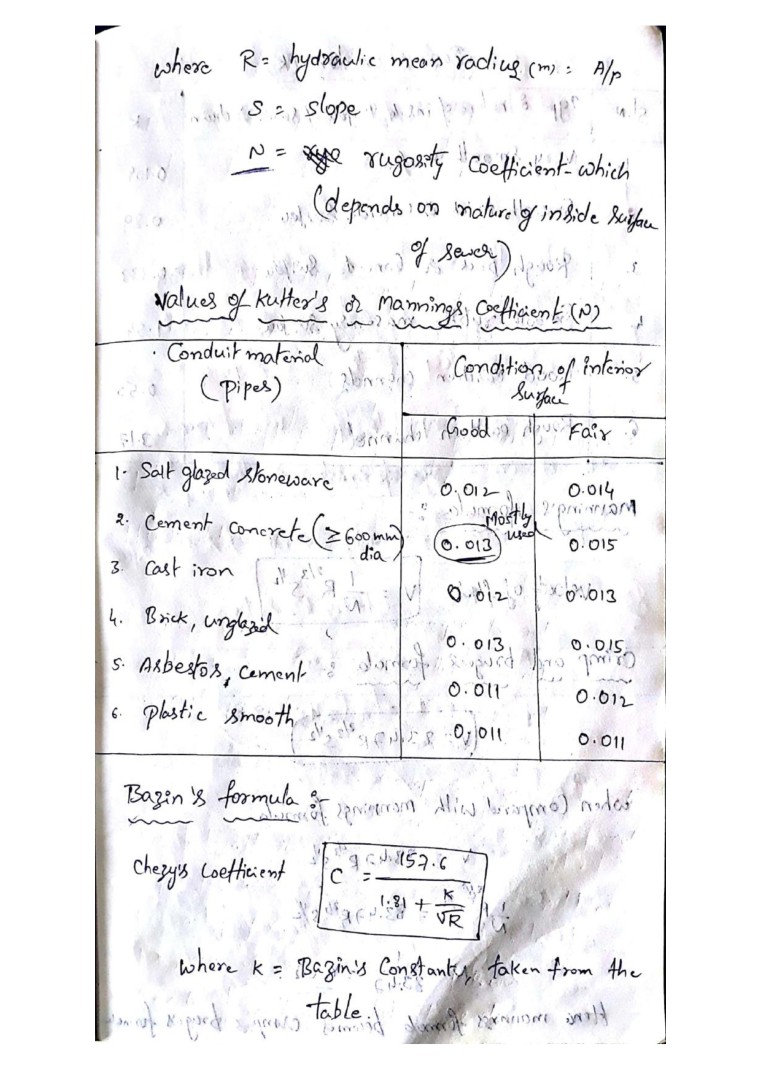 where R = hydraulic mean radius (m) = A/p
S = slope
N = rugosity Coefficient - which
(depends on nature of inside surface
of sewer)
values of Kutter's or Mannings Coefficient (N)
Conduit material Condition of interior
(Pipes) Surface
Good Fair
1. Salt glazed stoneware 0.012 0.014
2. Cement concrete (≥600mm dia) 0.013 Mostly used 0.015
3. Cast iron 0.012 0.013
4. Brick, unglazed 0.013 0.015
5. Asbestos, cement 0.011 0.012
6. Plastic smooth 0.011 0.011
Bazin's formula :-
Chezy's Coefficient C = 157.6 / (1.81 + K/√R)
where K = Bazin's Constant, taken from the
table.